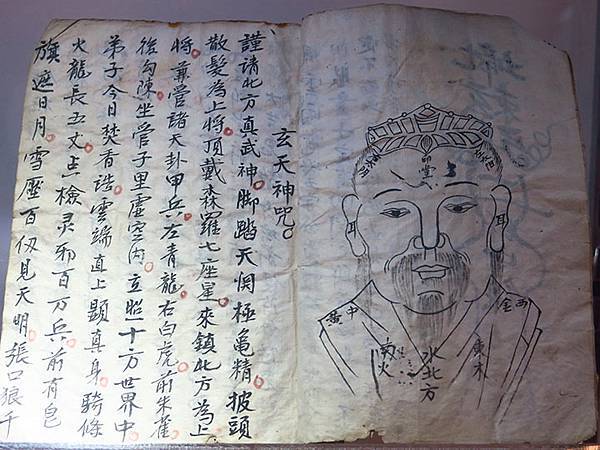 玄天神咒。
謹請北方真武神。脚踏天関極龜精。披頭
散髮為上將。頂戴森羅七座星。來鎮北方為上
將。兼管諸天卦甲兵。左青龍右白虎。前朱雀
後勾陳。坐管子里虛空内。立照十方世界中。
弟子今日焚香誥。雲端直上顕真身。騎條
火龍長五丈。点檢灵邪百万兵。前有皂
旗遮日月。雪壓百仭見天明。張口狼千
印堂
耳
耳
中黃
西金
火
木
水北方